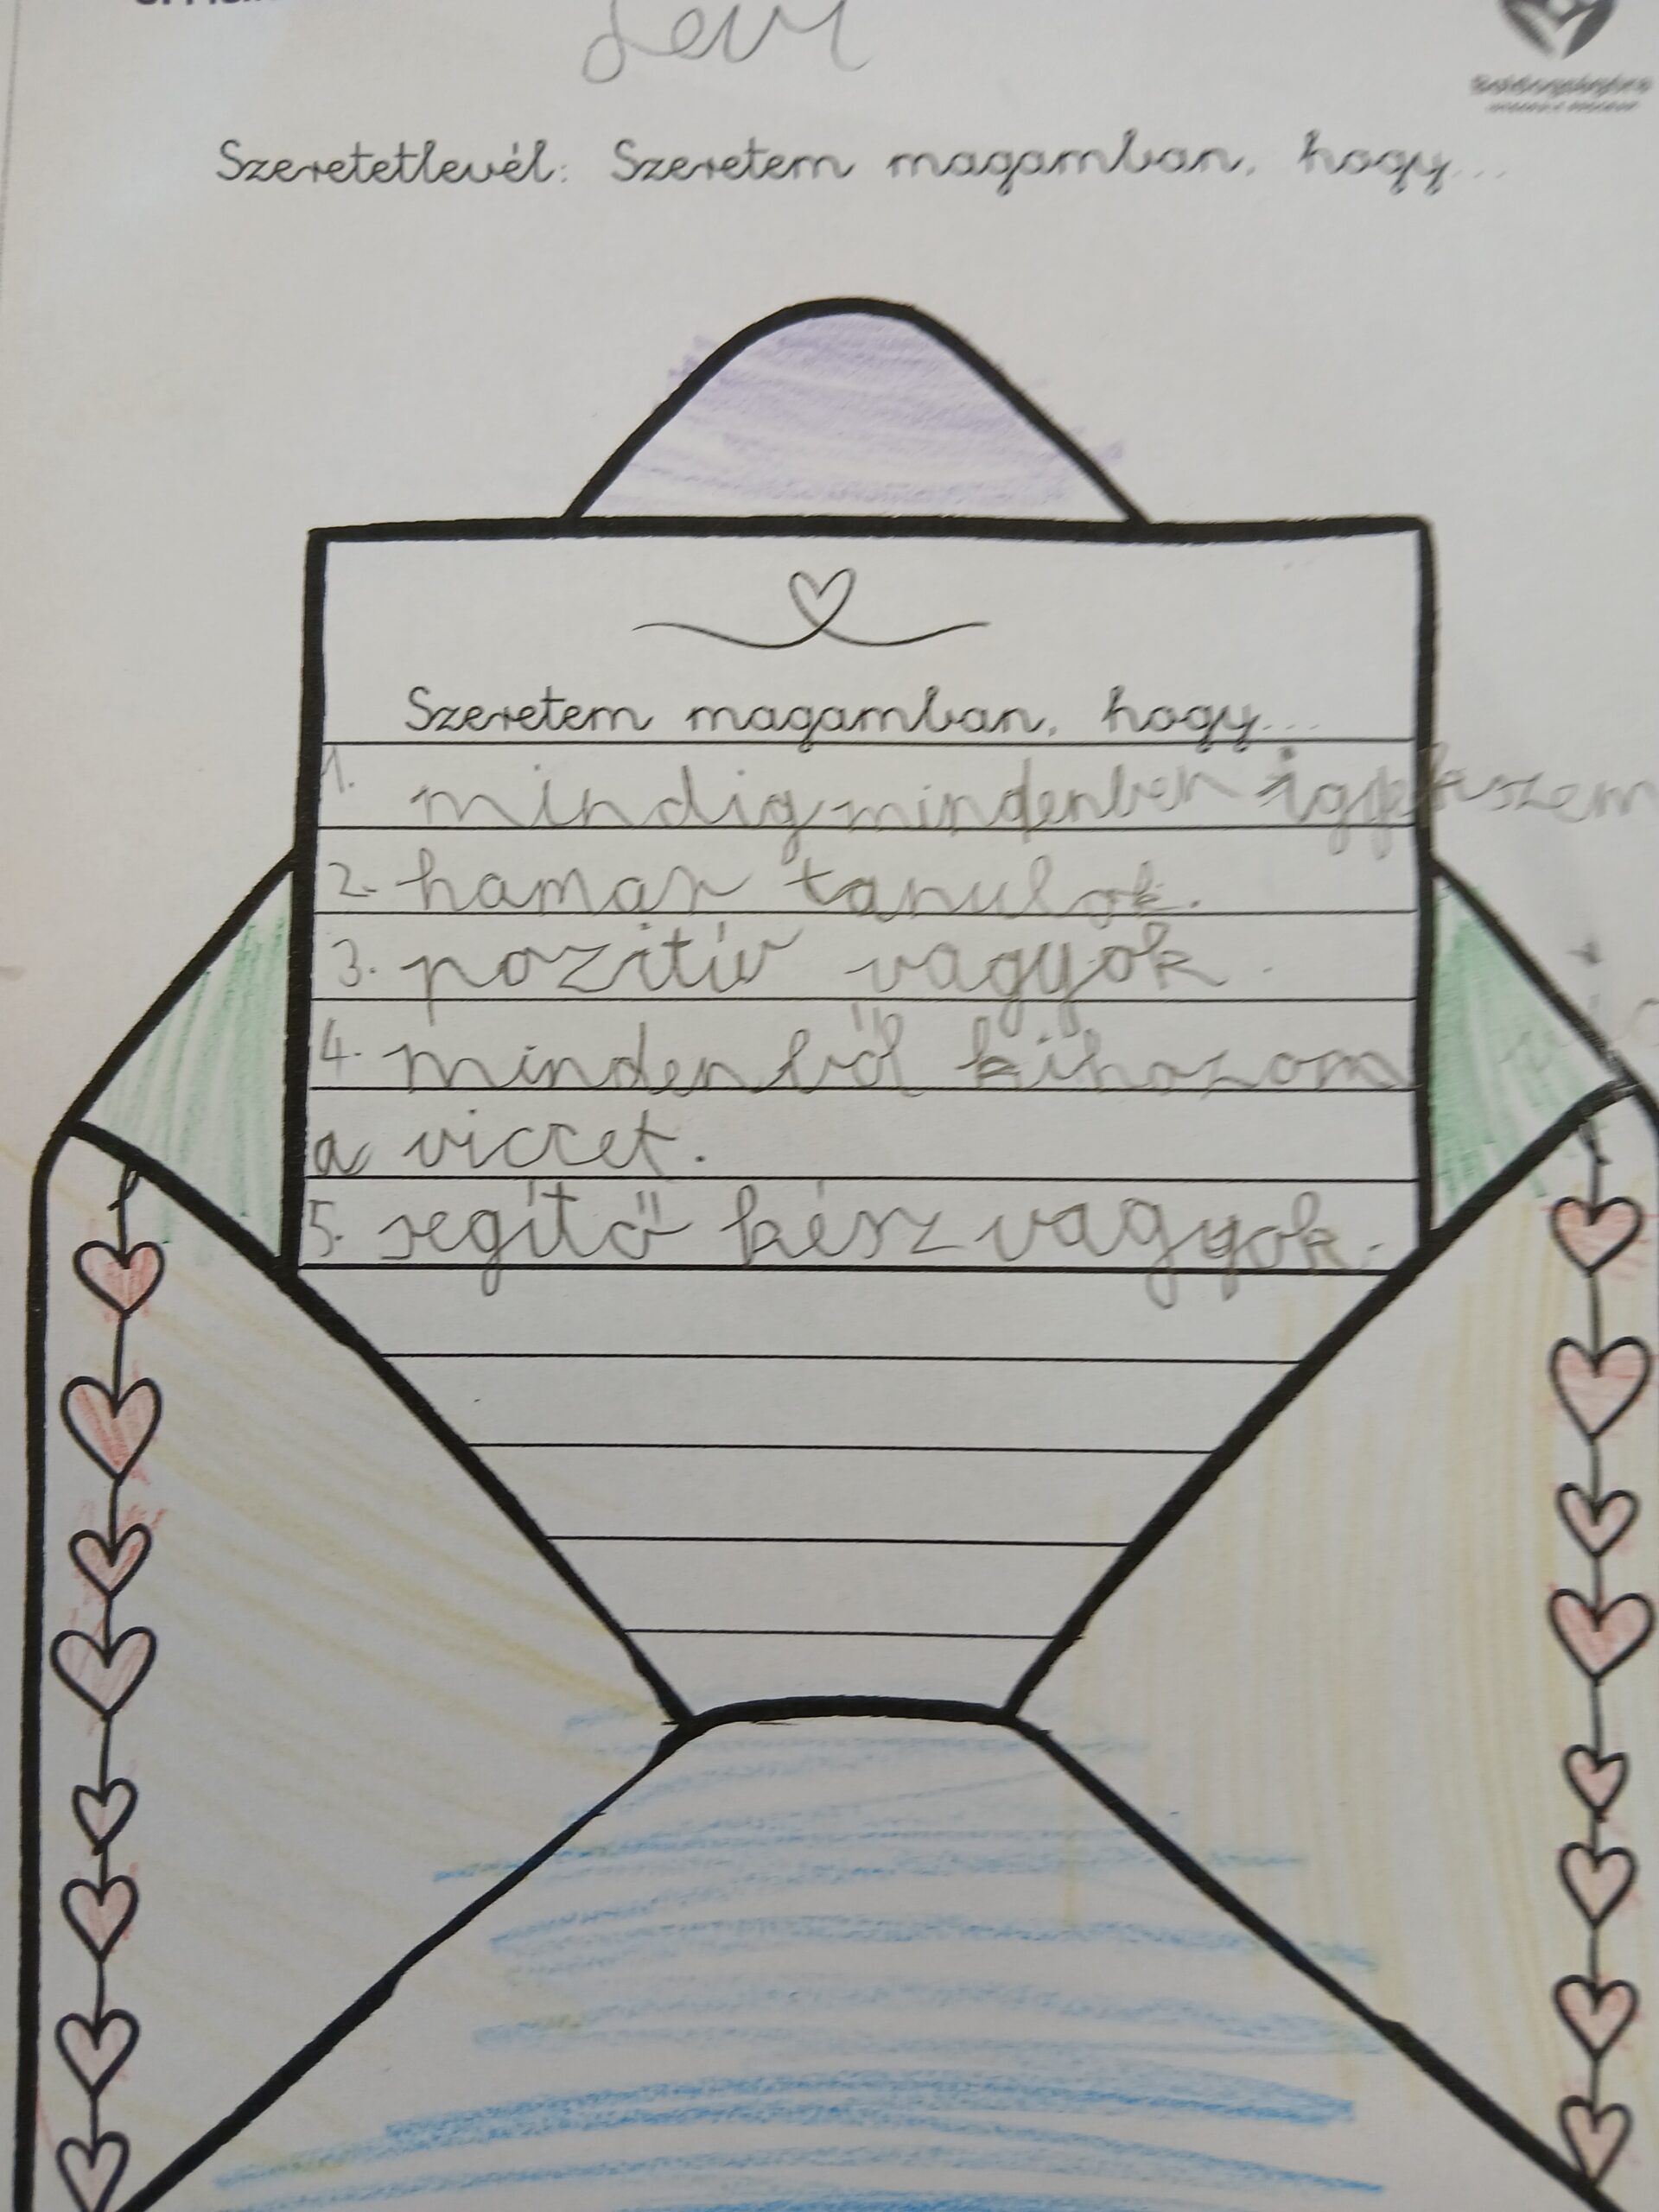 Levi
Szeretetlevél: Szeretem magamban, hogy...
Szeretem magamban, hogy...
1. mindig mindenben
2. hamar tanulok.
3. pozitív vagyok.
4. mindenből kihozom
a viccet.
5. segítő kész vagyok.